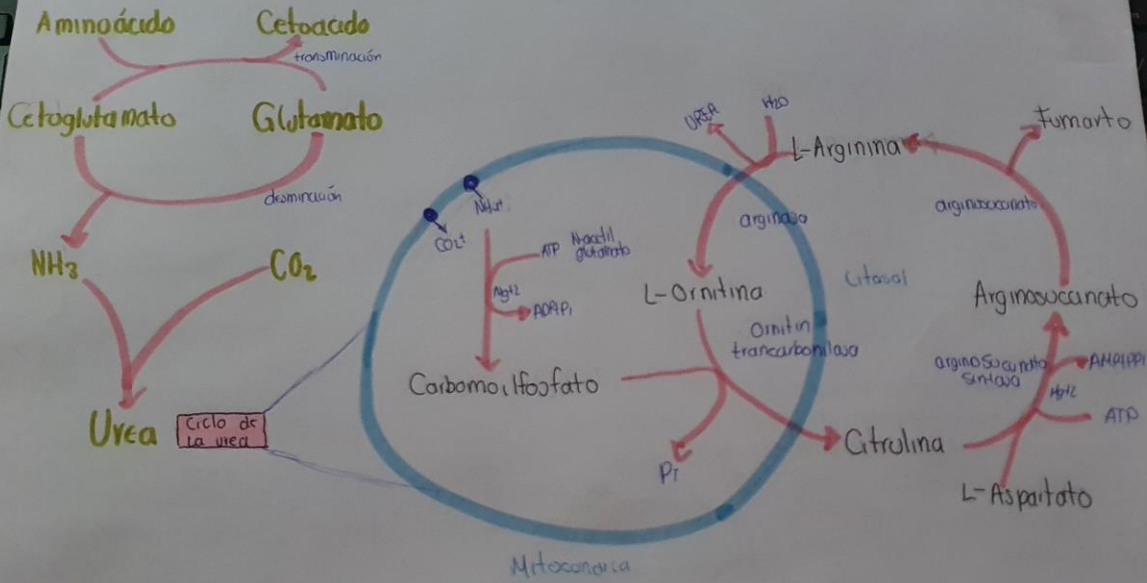 Aminoácido
Cetoacido
transminación
Cetoglutamato
Glutamato
desminación
NH3
CO2
Urea
Ciclo de
La urea
NH4+
CO2+
ATP
N-acetil
glutamato
Mg+2
ADP+Pi
Carbomoilfosfato
UREA
H2O
L-Arginina
arginasa
L-Ornitina
Ornitin
trancarbonilasa
Pi
Citrulina
Citosol
Fumarto
arginosuccinato
Arginosucanato
arginosucunato
sintasa
AMP+PPi
Mg+2
ATP
L-Aspartato
Mitocondria